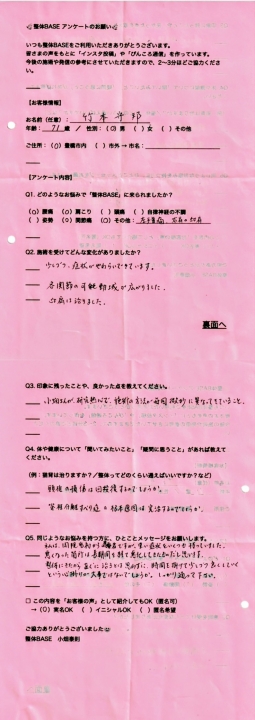 整体BASE アンケートのお願い
いつも整体BASEをご利用いただきありがとうございます。
皆さまの声をもとに「インスタ投稿」や「ぴんころ通信」を作っています。
今後の施術や発信の参考にさせていただきますので、2〜3分ほどご協力ください。
【お客様情報】
お名前（任意）：竹本
年齢： 71 歳 / 性別：（○）男 （ ）女 （ ）その他
ご住所：（○）豊橋市内 （ ）市外 → 市名：
【アンケート内容】
Q1. どのようなお悩みで「整体BASE」に来られましたか？
（○）腰痛 （○）肩こり （ ）頭痛 （ ）自律神経の不調
（ ）姿勢 （○）関節痛 （○）その他：
Q2. 施術を受けてどんな変化がありましたか？
症状がやわらいできています。
各関節の可動域が広がりました。
は治りました。
裏面へ
Q3. 印象に残ったことや、良かった点を教えてください。
小畑さんが、研究熱心で、施術の方法が毎回微妙に異なってきていること。
Q4. 体や健康について「聞いてみたいこと」「疑問に思うこと」があれば教えてください。
（例：猫背は治りますか？／整体ってどのくらい通えばいいですか？など）
頸椎の損傷は回復するのでしょうか。
脊椎分離すべり症の根本原因は完治するのでしょうか。
Q5. 同じようなお悩みを持つ方に、ひとことメッセージをお願いします。
悪くなった箇所は長期間を経て悪化してきたのだと思います。
整体にきたから直ぐに治るとは思わずに、時間を掛けて少しづつ良くしていく
という心掛けが大事ではないでしょうか。しっかり通って下さい。
□ この内容を「お客様の声」として紹介してもOK（匿名可）
→（○）実名OK （ ）イニシャルOK （ ）匿名希望
ご協力ありがとうございました
整体BASE 小畑泰則